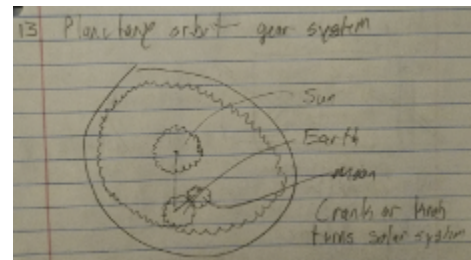 13 Planetary orbit gear system
Sun
Earth
Moon
Crank or knob
turns solar system